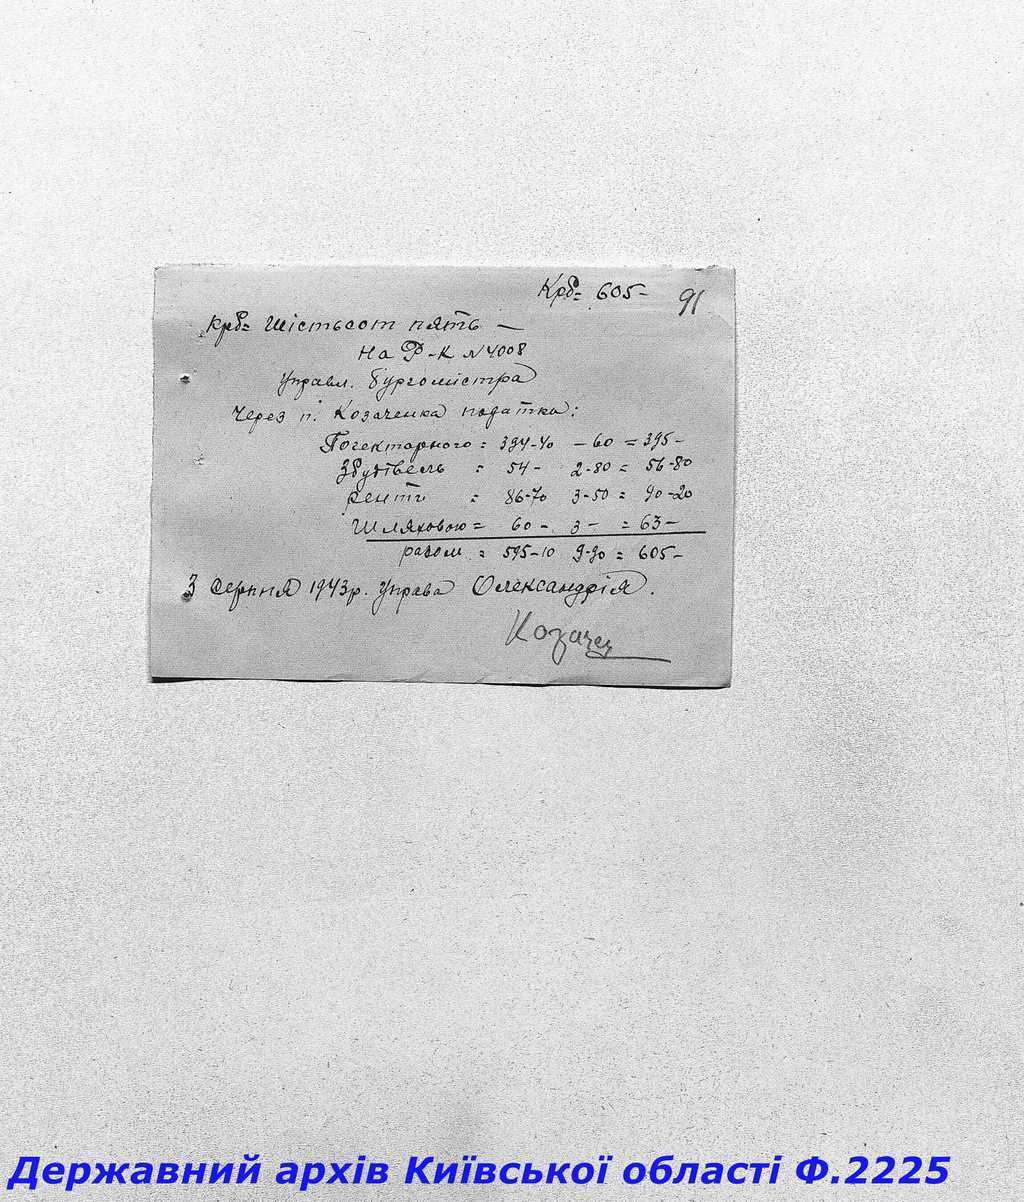 Крб= 605-
91
крб= Шістьсот пять —
На Р-К №4008
Управл. Бургомістра
Через п. Козаченка податка:
Погектарного = 394-40 -60 = 395-
Збудівель = 54- 2-80 = 56-80
Ренти = 86-70 3-50 = 90-20
Шляховою = 60- 3- = 63-
разом = 595-10 9-90 = 605-
3 Серпня 1943р. Управа Олександрія.
Державний архів Київської області Ф.2225